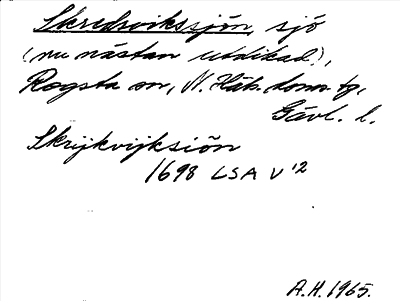 Skredsvikssjön, sjö
(nu nästan utdikad),
Rogsta sn, N. Häls. doms. tg,
Gävl. l.
Skrijkvijksiön
1698 LSA V 12
A.H. 1965.